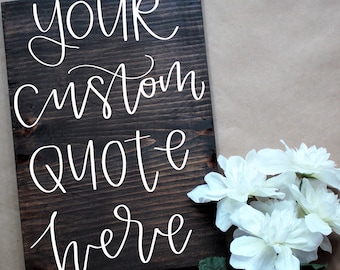 YOUR
custom
QUOTE
here